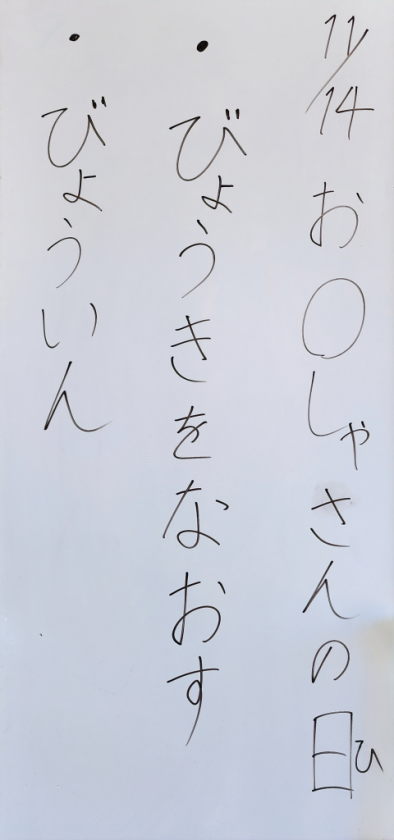 11/14 お○しゃさんの日ひ
・びょうきをなおす
・びょういん